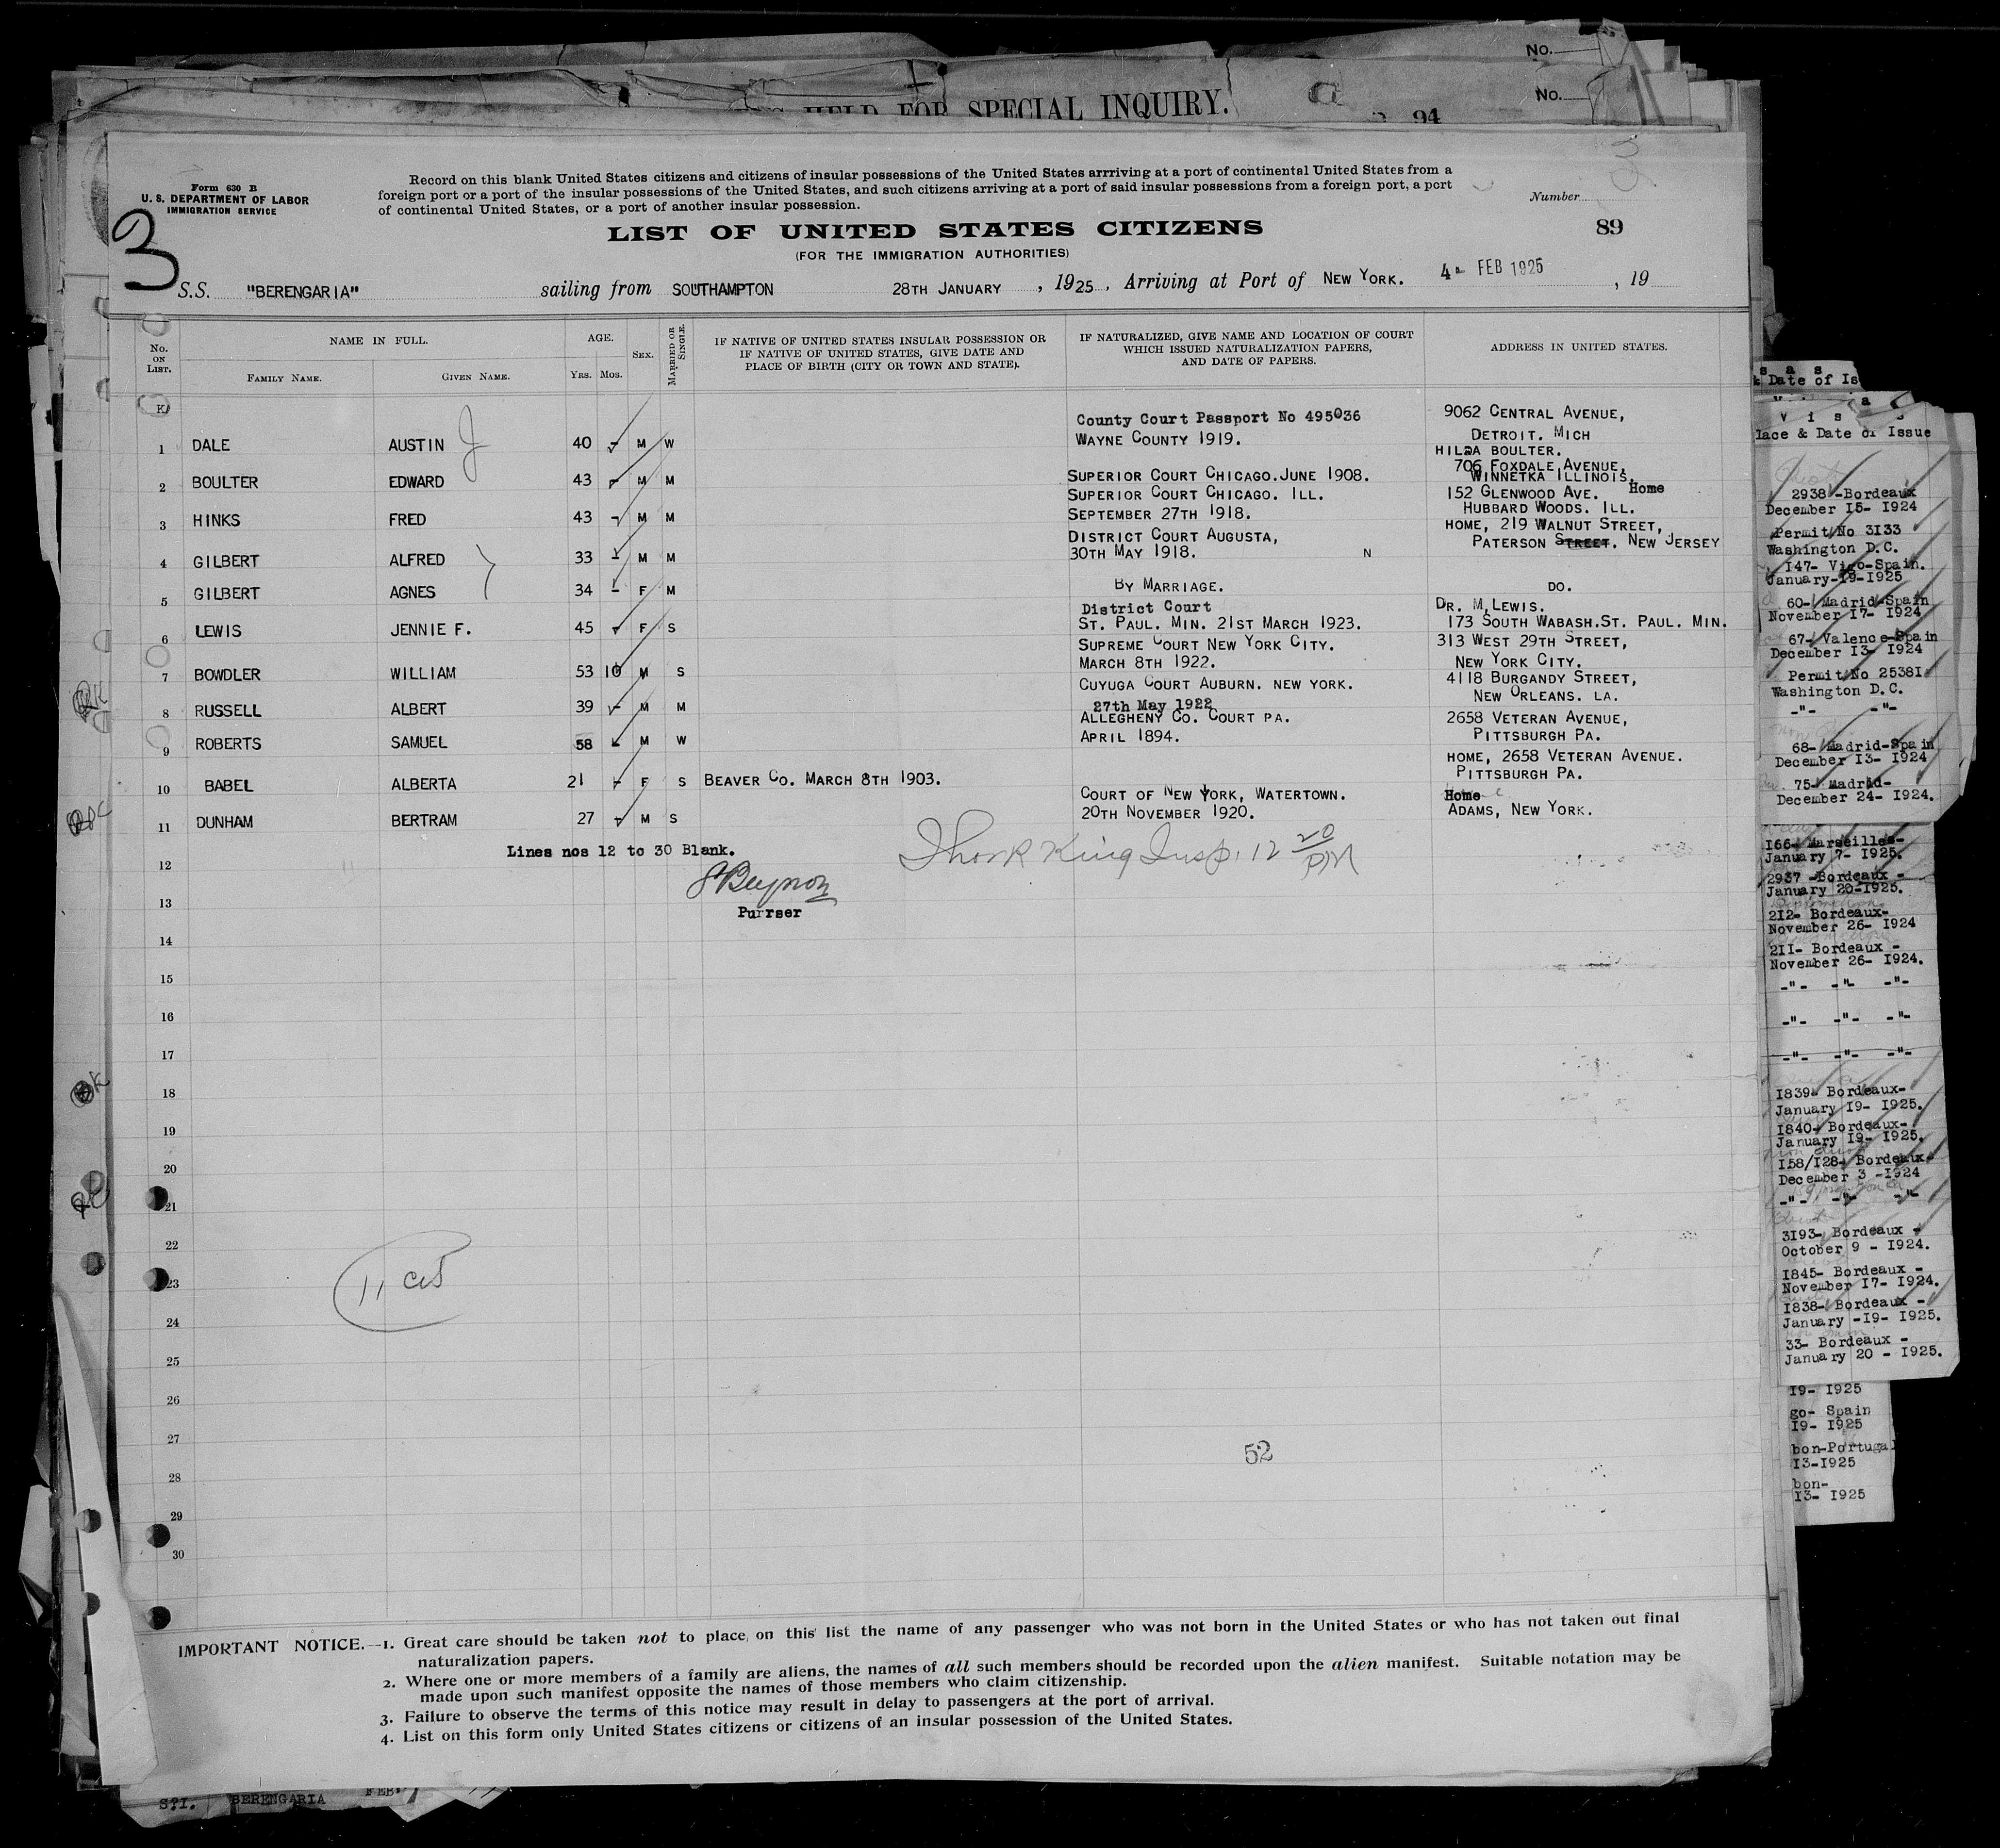 No.
HELD FOR SPECIAL INQUIRY.
No.
94
Form 630 B
U. S. DEPARTMENT OF LABOR
IMMIGRATION SERVICE
3
Record on this blank United States citizens and citizens of insular possessions of the United States arrriving at a port of continental United States from a
foreign port or a port of the insular possessions of the United States, and such citizens arriving at a port of said insular possessions from a foreign port, a port
of continental United States, or a port of another insular possession.
Number
89
LIST OF UNITED STATES CITIZENS
(FOR THE IMMIGRATION AUTHORITIES)
S.S. "BERENGARIA" sailing from SOUTHAMPTON 28TH JANUARY, 1925, Arriving at Port of NEW YORK. 4 FEB 1925, 19
No. ON LIST.
NAME IN FULL.
FAMILY NAME. GIVEN NAME.
AGE.
YRS. MOS.
SEX.
MARRIED OR SINGLE.
IF NATIVE OF UNITED STATES INSULAR POSSESSION OR
IF NATIVE OF UNITED STATES, GIVE DATE AND
PLACE OF BIRTH (CITY OR TOWN AND STATE).
IF NATURALIZED, GIVE NAME AND LOCATION OF COURT
WHICH ISSUED NATURALIZATION PAPERS,
AND DATE OF PAPERS.
ADDRESS IN UNITED STATES.
County Court Passport No 495036 9062 CENTRAL AVENUE,
1 DALE AUSTIN J 40 - M W WAYNE COUNTY 1919. DETROIT. MICH
HILDA BOULTER.
706 FOXDALE AVENUE,
2 BOULTER EDWARD 43 - M M SUPERIOR COURT CHICAGO.JUNE 1908. WINNETKA ILLINOIS.
SUPERIOR COURT CHICAGO. ILL. 152 GLENWOOD AVE. Home
3 HINKS FRED 43 - M M SEPTEMBER 27TH 1918. HUBBARD WOODS. ILL.
DISTRICT COURT AUGUSTA, HOME, 219 WALNUT STREET,
4 GILBERT ALFRED 33 - M M 30TH MAY 1918. N PATERSON STREET. NEW JERSEY
5 GILBERT AGNES 34 - F M BY MARRIAGE. DO.
District Court DR. M.LEWIS.
6 LEWIS JENNIE F. 45 - F S ST. PAUL. MIN. 21ST MARCH 1923. 173 SOUTH WABASH.ST. PAUL. MIN.
SUPREME COURT NEW YORK CITY. 313 WEST 29TH STREET,
7 BOWDLER WILLIAM 53 10 M S MARCH 8TH 1922. NEW YORK CITY.
CUYUGA COURT AUBURN. NEW YORK. 4118 BURGANDY STREET,
8 RUSSELL ALBERT 39 - M M 27th May 1922 NEW ORLEANS. LA.
ALLEGHENY CO. COURT PA. 2658 VETERAN AVENUE,
9 ROBERTS SAMUEL 58 - M W APRIL 1894. PITTSBURGH PA.
HOME, 2658 VETERAN AVENUE.
10 BABEL ALBERTA 21 - F S BEAVER CO. MARCH 8TH 1903. PITTSBURGH PA.
COURT OF NEW YORK, WATERTOWN. Home
11 DUNHAM BERTRAM 27 - M S 20TH NOVEMBER 1920. ADAMS, NEW YORK.
Lines nos 12 to 30 Blank.
King Insp. 12 20 PM
Purrser
12
13
14
15
16
17
18
19
20
21
22
23
24
25
26
27
28
29
30
52
IMPORTANT NOTICE.—1. Great care should be taken not to place on this list the name of any passenger who was not born in the United States or who has not taken out final
naturalization papers.
2. Where one or more members of a family are aliens, the names of all such members should be recorded upon the alien manifest. Suitable notation may be
made upon such manifest opposite the names of those members who claim citizenship.
3. Failure to observe the terms of this notice may result in delay to passengers at the port of arrival.
4. List on this form only United States citizens or citizens of an insular possession of the United States.
S?I. BERENGARIA FEB
s a s
& Date of Is
V i s a s
lace & Date of Issue
2938 -Bordeaux
December 15- 1924
Permit No 3133
Washington D.C.
147- Vigo-Spain.
January-19-1925
60- Madrid-Spain
November 17- 1924
67- Valence-Spain
December 13- 1924
Permit No 25381
Washington D.C.
-"- -"-
68- Madrid-Spain
December 13- 1924
75- Madrid-
December 24- 1924.
166- Marseilles-
January 7- 1925.
2937 -Bordeaux -
January 20-1925.
212- Bordeaux-
November 26- 1924
211- Bordeaux -
November 26- 1924.
-"- -"- -"-
-"- -"- -"-
-"- -"- -"-
1839- Bordeaux-
January 19- 1925.
1840- Bordeaux-
January 19- 1925.
158/128- Bordeaux-
December 3 -1924
-"- -"- -"-
3193- Bordeaux -
October 9 - 1924.
1845- Bordeaux -
November 17- 1924.
1838- Bordeaux -
January -19- 1925.
33- Bordeaux -
January 20 - 1925.
19- 1925
go- Spain
19- 1925
bon-Portugal
13-1925
bon-
13- 1925